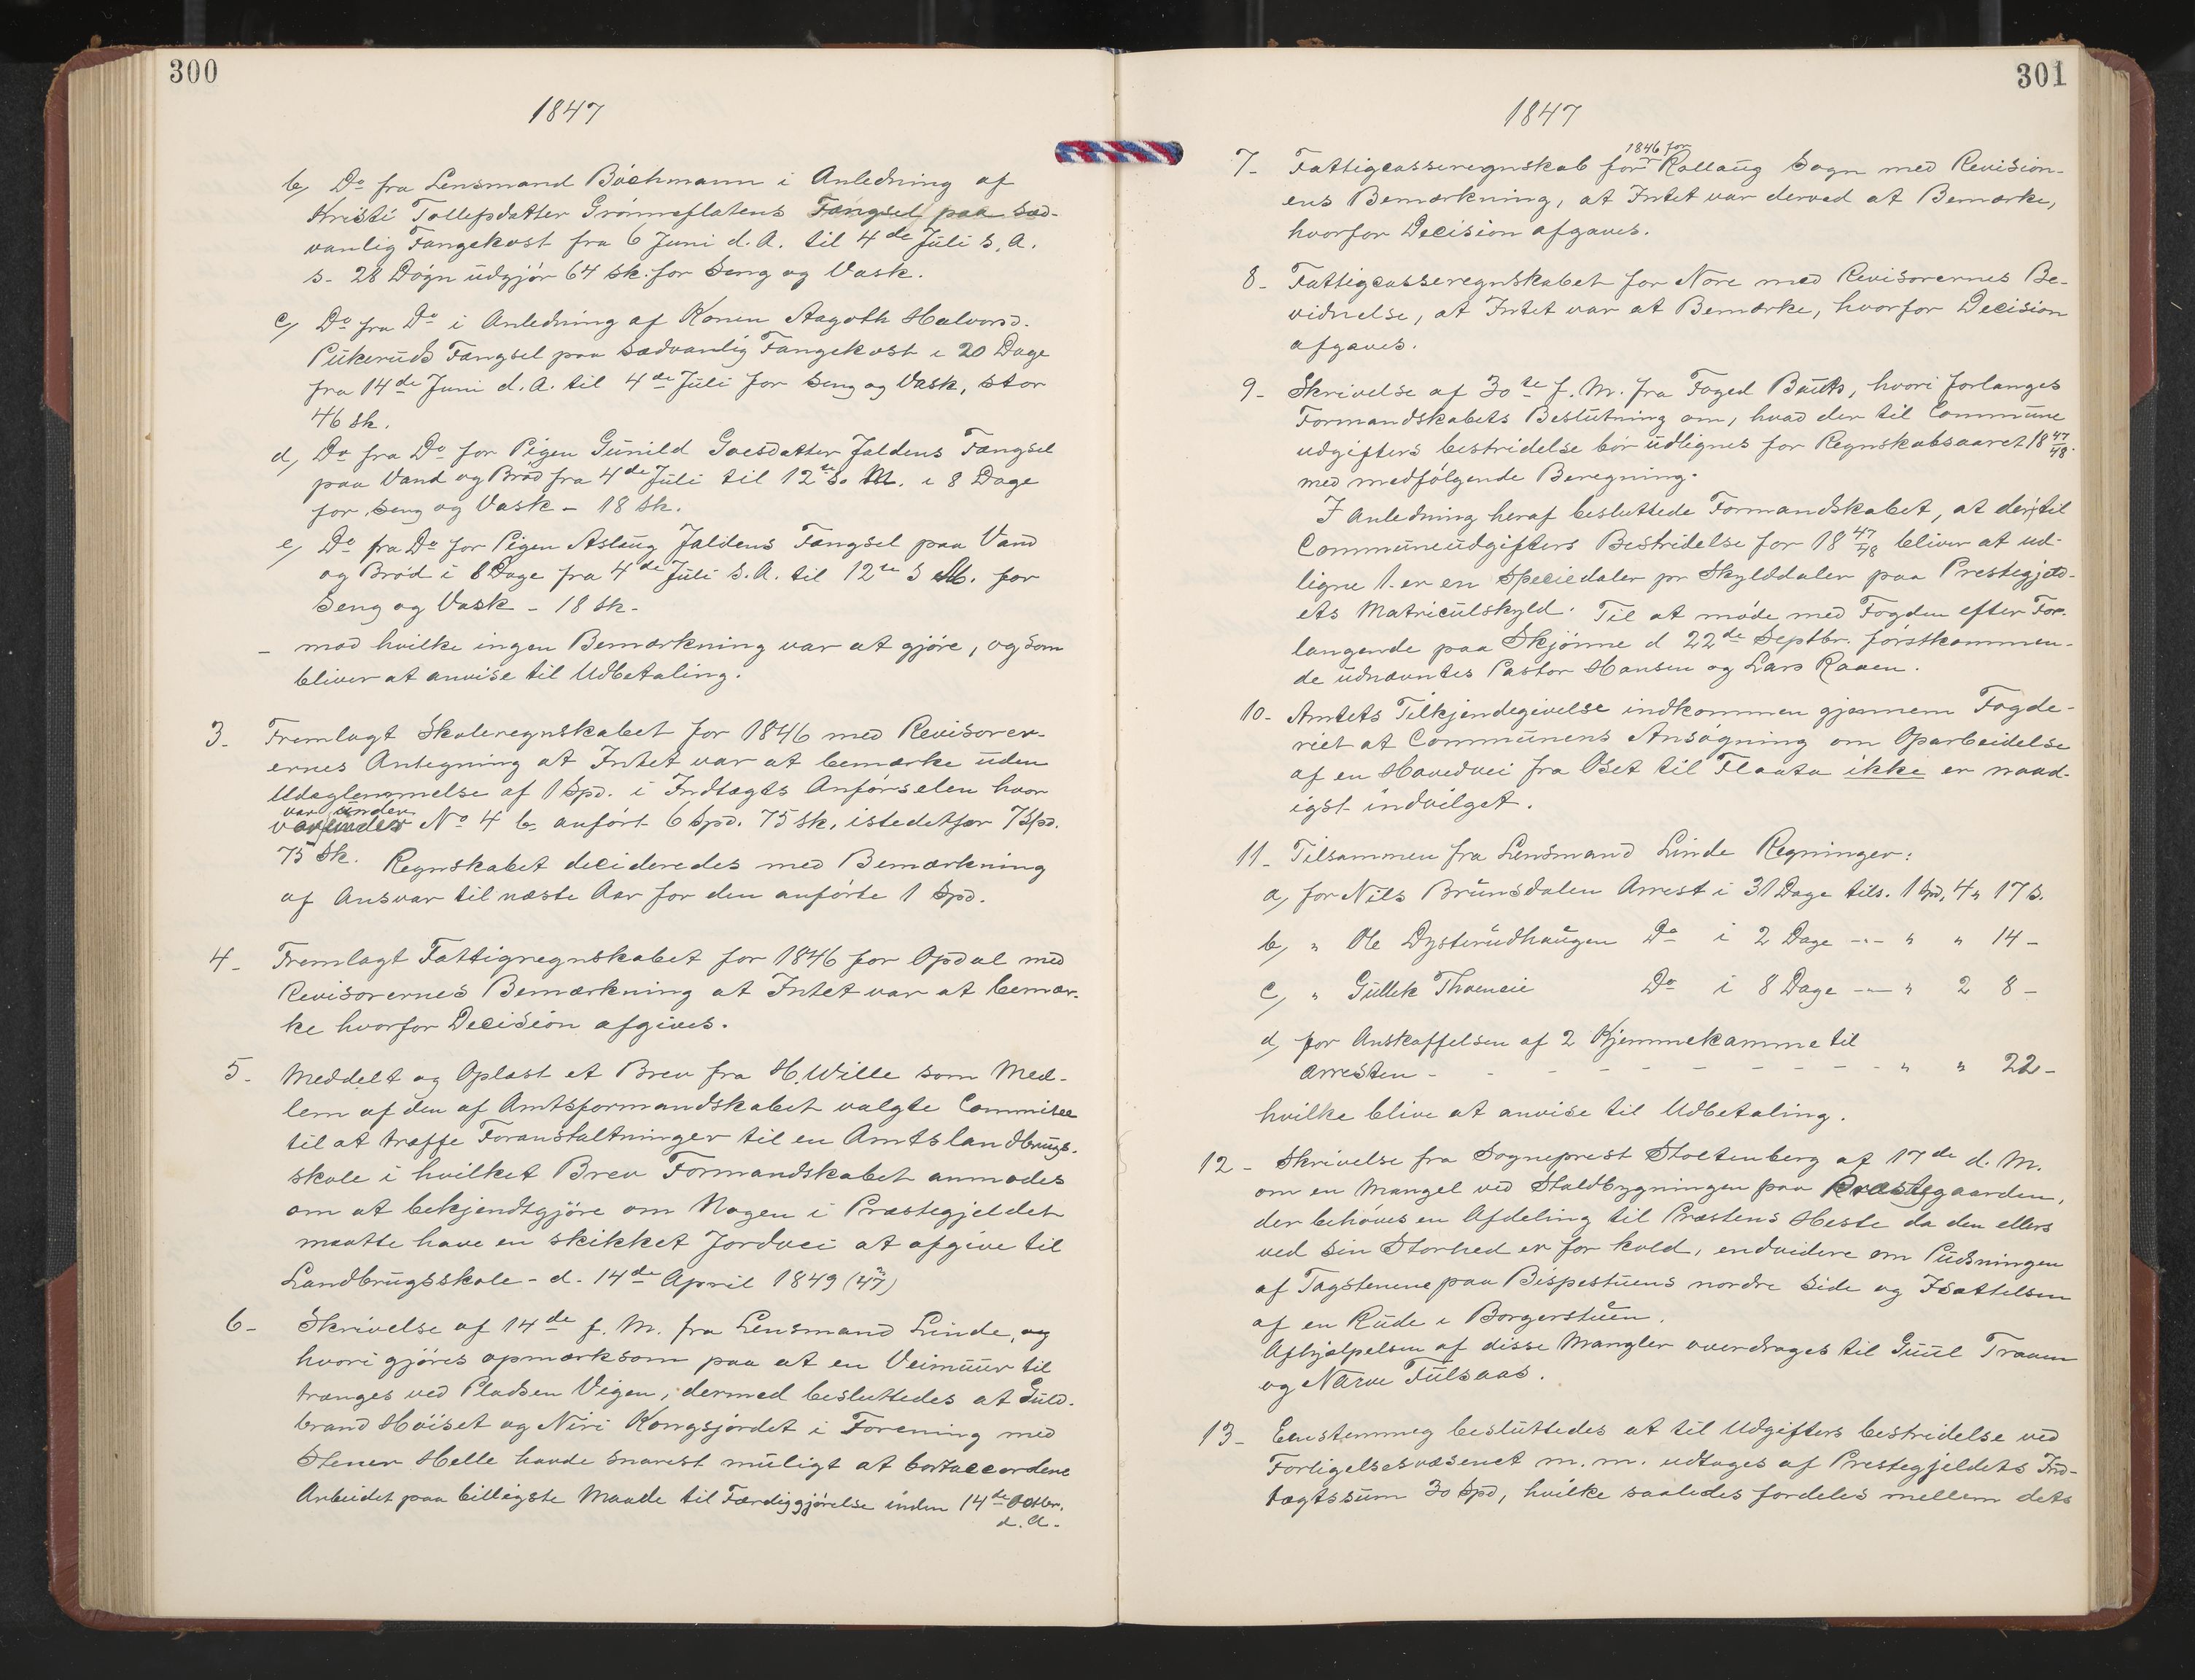 300
1847
b, Do fra Lensmand Böchmann i Anledning af
Kristi Tollefsdatter Grönneflatens Fængsel paa sæd-
vanlig Fangekost fra 6 Juni d. A. til 4de Júli s. A.
s. 28 Dögn údgjör 64 sk. for Seng og Vask.
c, Do fra Do i Anledning af Konen Aagoth Halvorsd.
Púkerúds Fængsel paa sædvanlig Fangekost i 20 Dage
fra 14de Juni d. A. til 4de Júli for Seng og Vask, stor
46 sk.
d, Do fra Do for Pigen Gúnild Goesdatter Jaldens Fængsel
paa Vand og Bröd fra 4de Júli til 12te s. M. i 8 Dage
for Seng og Vask - 18 sk.
e, Do fra Do for Pigen Aslaúg Jaldens Fængsel paa Vand
og Bröd i 8 Dage fra 4de Júli s. A. til 12te s M. for
Seng og Vask - 18 sk -
- mod hvilke ingen Bemærkning var at gjöre, og som
bliver at anvise til Udbetaling.
3. Fremlagt Skoleregnskabet for 1846 med Revisorer-
ernes Antegning at Intet var at bemærke úden
Udeglemmelse af 1 Spd. i Indtægts Anförselen hvor
var únder
No 4 b. anfört 6 Spd. 75 sk. istedetfor 7 Spd.
75 Sk. Regnskabet decideredes med Bemærkning
af Ansvar til næste Aar for den anförte 1 Spd.
4- Fremlagt Fattigregnskabet for 1846 for Opdal med
Revisorernes Bemærkning at Intet var at bemær-
ke hvorfor Decision afgives.
5- Meddelt og Oplæst et Brev fra H. Wille som Med-
lem af den af Amtsformandskabet valgte Commitee
til at træffe Foranstaltninger til en Amtslandbrúgs-
skole i hvilket Brev Formandskabet anmodes
om at bekjendtgjöre om Nogen i Præstegjeldet
maatte have en skikket Jordvei at afgive til
Landbrúgsskole - d. 14de April 1849 (47)
6- Skrivelse af 14de f. M. fra Lensmand Linde, og
hvori gjöres opmærksom paa at en Veimúúr til
trænges ved Pladsen Vigen; dermed beslúttedes at Gúld-
brand Höiset og Niri Kongsjordet i Forening med
Stener Helle havde snarest múligt at bortaccordere
Arbeidet paa billigste Maade til Færdiggjörelse inden 14de Octbr.
d. A.
301
1847
1846 for
7- Fattigcasseregnskab for Rollaúg Sogn med Revision-
ens Bemærkning, at Intet var derved at Bemærke,
hvorfor Decision afgaves.
8- Fattigcasseregnskabet for Nore med Revisorernes Be-
vidnelse, at Intet var at Bemærke, hvorfor Decision
afgaves.
9- Skrivelse af 30te f. M. fra Foged hvori forlanges
Formandskabets Beslútning om, hvad der til Commúne
udgifters bestridelse bör údlignes for Regnskabsaaret 18 47/48.
med medfölgende Beregning.
I Anledning heraf beslúttede Formandskabet, at der til
Commúneúdgifters Bestridelse for 18 47/48 bliver at ud-
ligne 1. er en Speciedaler pr Skylddaler paa Prestegjeld-
ets Matriculskyld. Til at möde med Fogden efter For-
langende paa Skjönne d 22de Septbr. förstkommen-
de údnævntes Pastor Hansen og Lars Raaen.
10- Amtets Tilkjendegivelse indkommen gjennem Fogde-
riet at Commúnens Ansögning om Oparbeidelse
af en Hovedvei fra Öset til Flaata ikke er naad-
igst indvilget.
11- Tilsammen fra Lensmand Linde Regninger:
a, for Nils Brúnsdalen Arrest i 31 Dage tils. 1 Spd, 4 " 17 s.
b, " Ole Dysterúdhaúgen Do i 2 Dage --- " " 14 -
c, " Gúllik Do i 8 Dage --- " 2 8 -
d, for Anskaffelsen af 2 Kjemmekamme til
Arresten - - - - - - - - - - " " 22 -
hvilke blive at anvise til Udbetaling.
12- Skrivelse fra Sogneprest Stoltenberg af 17de d. M.
om en Mangel ved Staldbygningen paa Præstegaarden,
der behöves en Afdeling til Præstens Heste da den ellers
ved sin Storhed er for kold, endvidere om Púdsningen
af Tagstenene paa Bispestúens nordre Side og Isættelsen
af en Rúde i Borgerstúen.
Afhjælpelsen af disse Mangler overdrages til Gúúl Traaen
og Narve Fúlsaas.
13- Eenstemmeg beslúttedes at til Udgifters bestridelse ved
Forligelsesvæsenet m. m. udtages af Prestegjeldets Ind-
tægtssúm 30 Spd, hvilke saaledes fordeles mellem dets